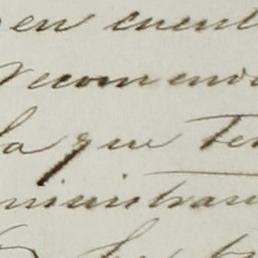 en cuent
recomend
la que Te
ministran